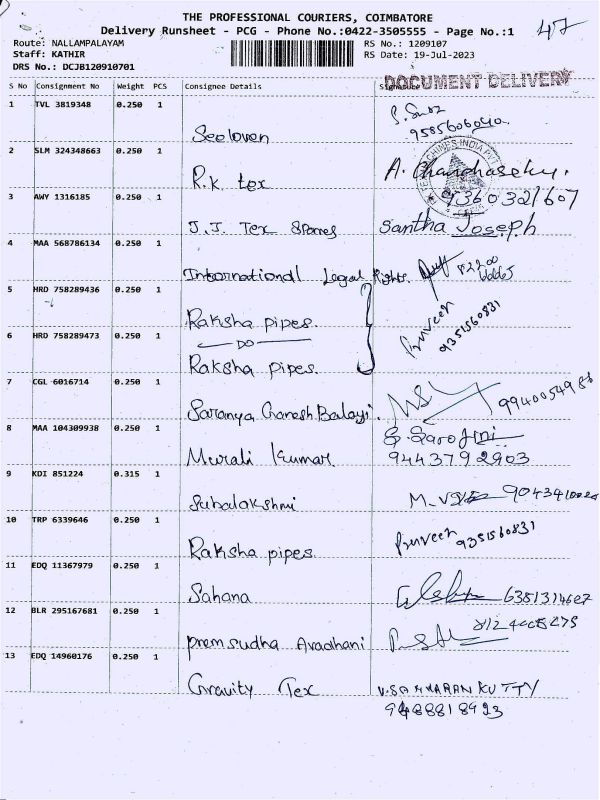 THE PROFESSIONAL COURIERS, COIMBATORE
Delivery Runsheet - PCG - Phone No.:0422-3505555 - Page No.:1
47
Route: NALLAMPALAYAM
RS No.: 1209107
Staff: KATHIR
RS Date: 19-Jul-2023
DRS No.: DCJB120910701
DOCUMENT DELIVERY
S No Consignment No Weight PCS Consignee Details
1 TVL 3819348 0.250 1
Seeloven
2 SLM 324348663 0.250 1
R.K. tex
A. Chandrasekar.
9360321607
3 AWY 1316185 0.250 1
J.J. Tex Spares
Santha Joseph
4 MAA 568786134 0.250 1
International Legal Rights.
5 HRD 758289436 0.250 1
Raksha pipes.
DO
Praveen
9351560831
6 HRD 758289473 0.250 1
Raksha pipes.
7 CGL 6016714 0.250 1
Saranya Ganesh Balaji.
8 MAA 104309938 0.250 1
Murali Kumar
S. Sarojini
9443792903
9 KDI 851224 0.315 1
Subalakshmi
10 TRP 6339646 0.250 1
Raksha pipes
Praveen 9351560831
11 EDQ 11367979 0.250 1
Sahana
12 BLR 295167681 0.250 1
prem sudha Avadhani
13 EDQ 14960176 0.250 1
Gravity Tex
V. SANKARAN KUTTY
9488818923